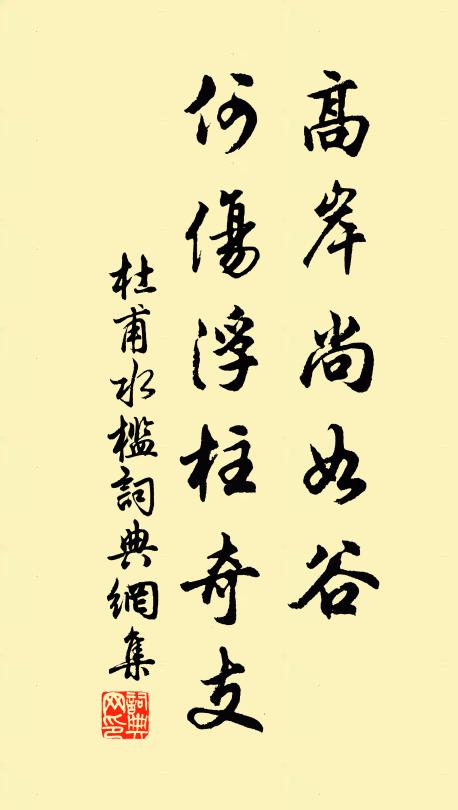 高岸尚如谷
何傷浮柱奇支
杜甫水檻詞典網集
詞典
网印